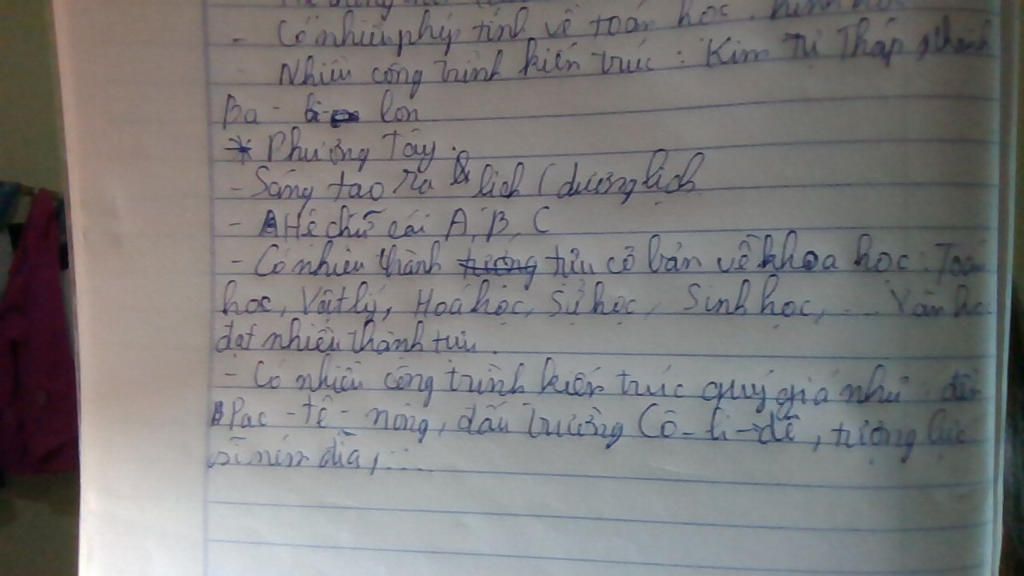 - Có nhiều phép tính về toán học, hình học
Nhiều công trình kiến trúc : Kim Tự Tháp, thành
Ba - lon
* Phương Tây.
- Sáng tạo ra lịch (dương lịch
- Hệ chữ cái A, B, C
- Có nhiều thành tựu cơ bản về khoa học : Toán
học, Vật lý, Hoá học, Sử học, Sinh học, ... Văn học
đạt nhiều thành tựu.
- Có nhiều công trình kiến trúc quý giá như : đền
Pac - tê - nông, đấu trường Cô - li - dê, tượng lực
sĩ ném đĩa, ...